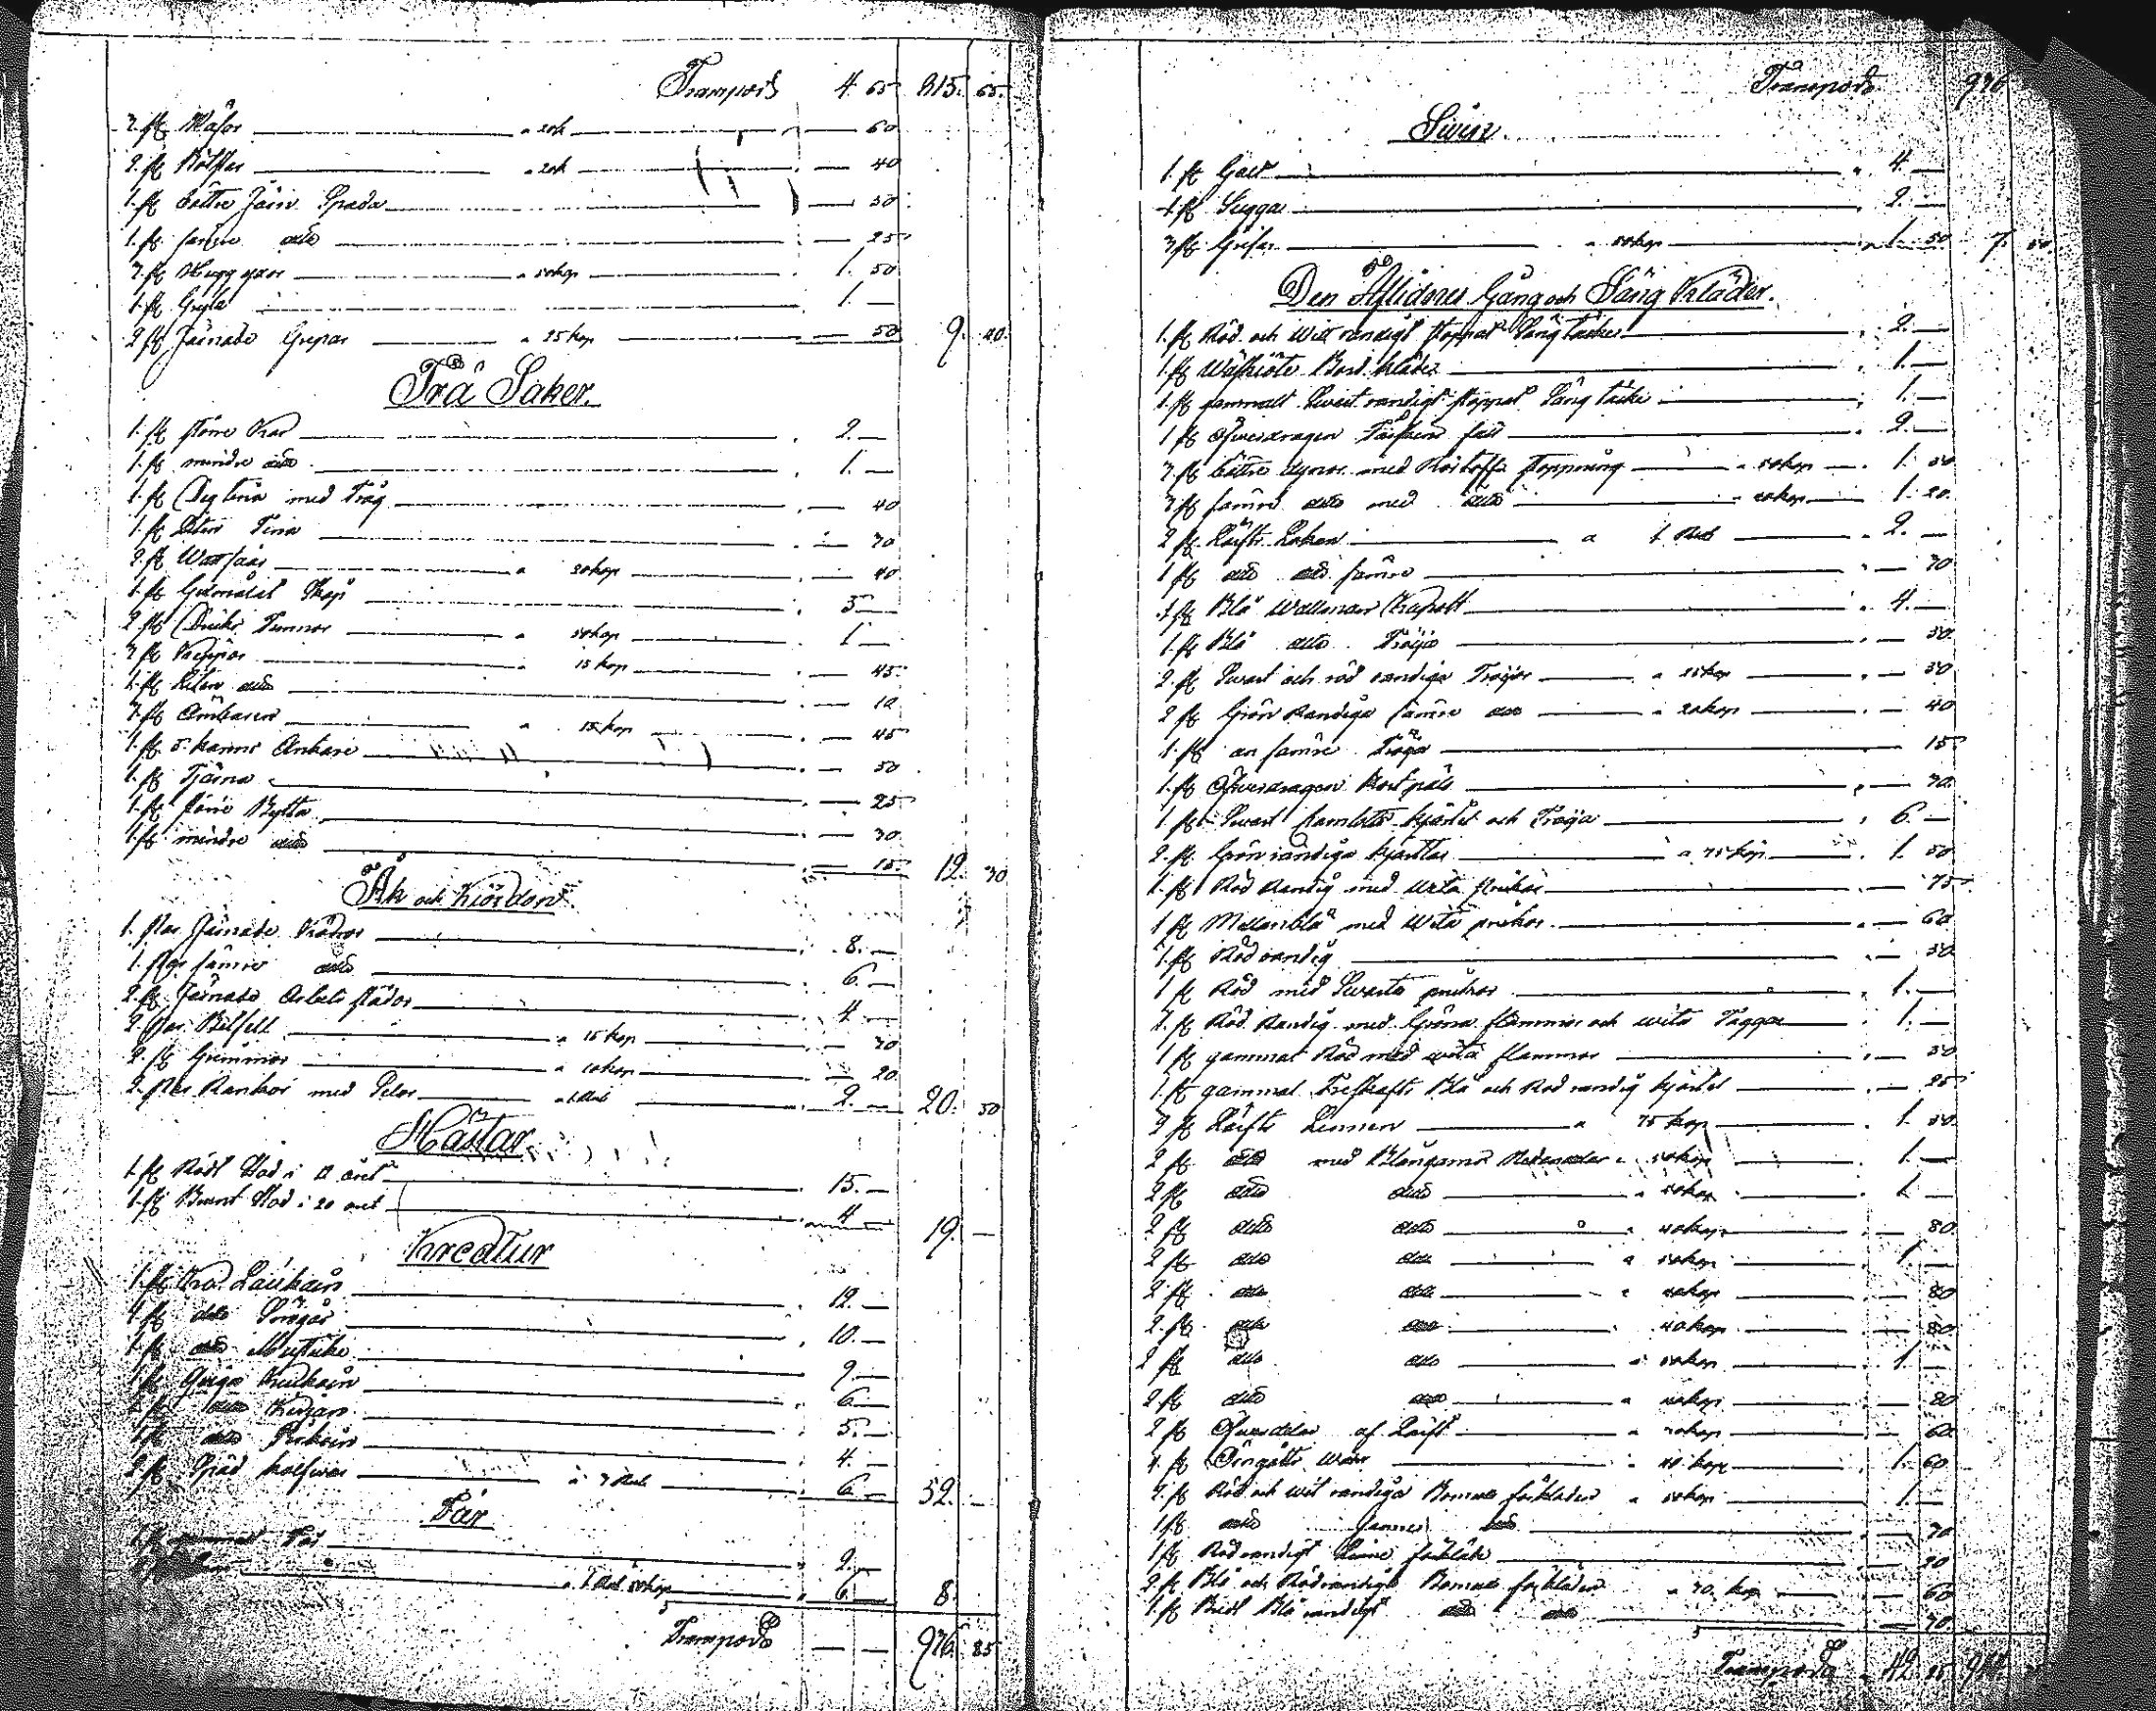 Transport 4 65 815. 65.
3. st Wåfor a 20 k — 60
2. st Böltar a 20 k — 40
1. st bättre Järn Spada — 50
1. st sämre dito — 25
3. st Hugg yxor a 50 kop 1. 50
1. st Gryta 1. —
2 st Järnade Grepar a 25 kop — 50 9. 20.
Trä Saker.
1. st större Kar 2. —
1. st mindre dito 1. —
1. st Degtina med Tråg — 40
1. st Liten Tina — 30
2. st Wattsåar a 20 kop — 40
1. st Gulmålat Skåp 5 —
2. st Dricks Tunnor a 50 kop 1 —
3 st Kappar a 15 kop — 45
1. st Liten dito — 10
3. st Ämbaren a 15 kop — 45
1. st 5. kanns Ankare — 50
1. st Tjärna — 25
1. st större Bytta — 30
1. st mindre dito — 15 12. 30
Åk och Kiördon.
1. Par Järnade Kärror 8. —
1. Par sämre dito 6. —
2. st Järnade Arbets slädor 4 —
2. Par Bilfell a 15 kop — 30
2. st Grimmor a 10 kop — 20
2. Par Rankor med Selar a 1 Rub 2. — 20. 50
Hästar
1. st Rödt Sto i 12 året 15. —
1. st Brunt Sto i 20 året 4 — 19. —
Kreatur
1. st Ko Laukain 12. —
1. st dito Sorgår 10. —
1. st dito Mustikе 9 —
1. st Qviga Kukkain 6 —
1. st dito Kirjan 5. —
1. st dito 4. —
2 st Späd kalfvar a 3 Rub 6 — 52. —
Får
1. st gammalt Får 2. —
a 1 Rub 50 kop 6. — 8.
Transport — — 936. 85
Transport 936
Svin.
1. st Galt 4. —
1. st Sugga 2. —
3 st Grisar a 50 kop 1. 50 7. 50
Den Aflidnes Gång och Säng Kläder.
1. st Röd och Witt randigt stoppat Sängtäcke 2. —
1. st Wäfkiöte Bord kläde 1. —
1. st gammalt Swart randigt stoppat Säng täcke 1. —
1 st Öfverdragen Fårskins fäll 2. —
3. st bättre dynor med stoppning a 50 kop 1. 50
3 st sämre dito med dito a 40 kop 1. 20.
2 st Lärfts Lakan a 1 Rub 2. —
1 st dito dito sämre — 30
1 st Blå Wallmars Kapott 4. —
1. st Blå dito Tröja — 50.
2. st Swart och röd randiga Tröjor a 25 kop — 50
2 st Grön Randiga sämre dito a 20 kop — 40
1. st än sämre Tröja — 15
1. st Öfverdragen Kortpäls — 30
1 st Swart Kamlotts kjortel och Tröja 6. —
2. st Grön randiga kjortlar a 75 kop 1. 50
1. st Röd Randig med wita prickar — 75
1 st Mellanblå med wita prickar — 60
1. st Röd randig — 50
1 st Röd med Swarta prickar 1. —
1. st Röd Randig med Gröna flammor och wita Taggar 1. —
1 st gammal Röd med wita flammor — 50
1. st gammal Treskafts Blå och Röd randig kjortel — 25
2 st Lärfts Linnen a 75 kop 1. 50.
2 st dito med Blångarns Nederdelar a 50 kop 1. —
2 st dito dito a 50 kop 1 —
2 st dito dito a 40 kop — 80
2 st dito dito a 50 kop 1. —
2 st dito dito a 40 kop — 80
2. st dito dito a 40 kop — 80.
2 st dito dito a 50 kop 1. —
2 st dito dito a 40 kop — 80
2 st Öfverdelar af Lärft a 30 kop — 60
4 st Örngåtts War a 40 kop 1. 60
2. st Röd och wit randiga Bomuls förkläden a 50 kop 1. —
1 st dito sämre dito — 30
1 st Röd randigt Linne förkläde — 20
2. st Blå och Rödrandigt Bomuls förkläden a 30 kop — 60
1. st Bredt Blå randigt dito dito — 30.
Transport 42 25 944